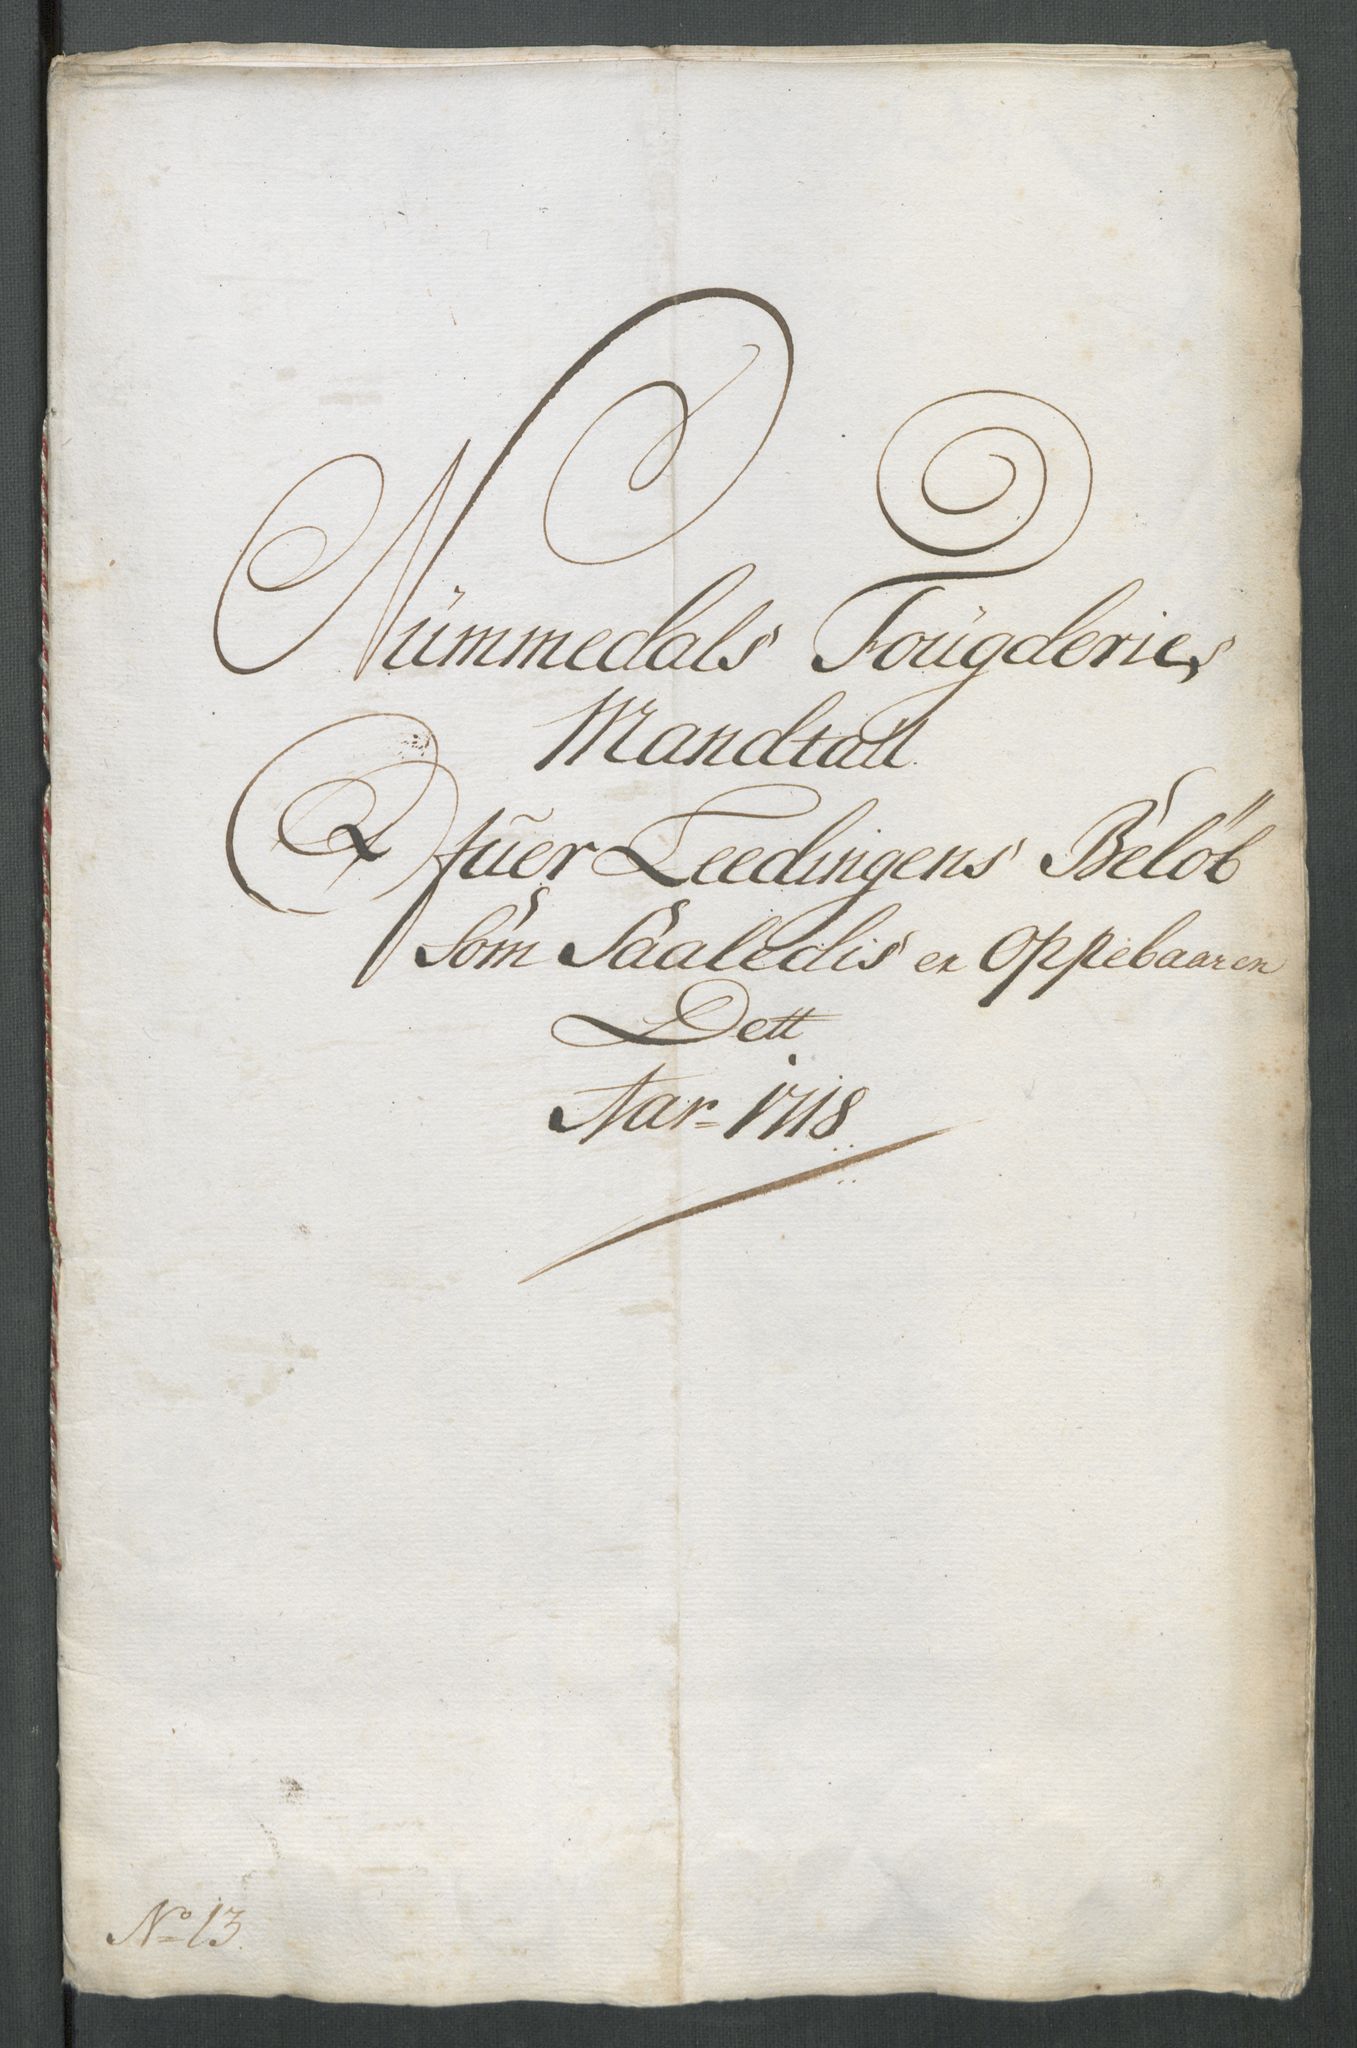 Nummedals Fougderies
Mandtall
Ofuer Leedingens Beløb
Som Saaledis er Oppebaaren
Dett
Aar 1718
No 13